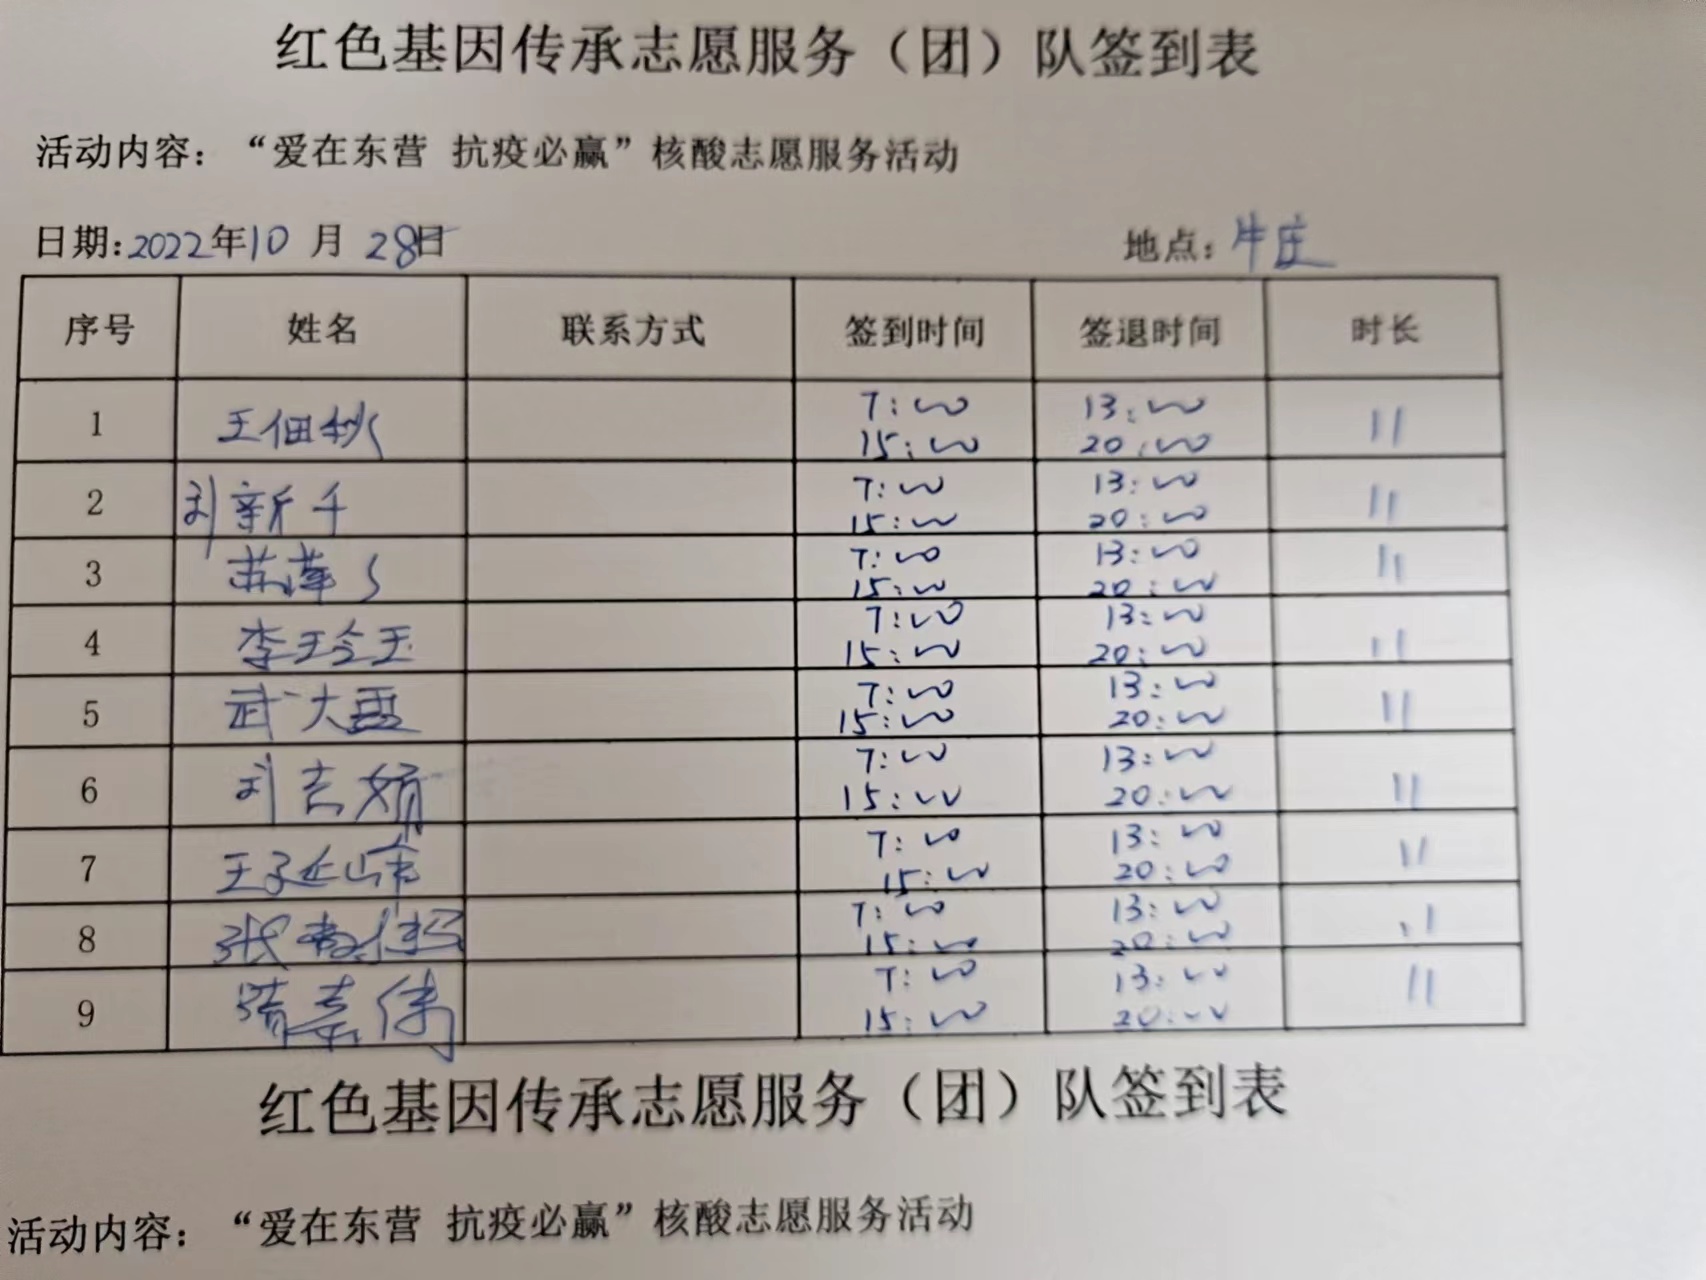 红色基因传承志愿服务（团）队签到表
活动内容：“爱在东营 抗疫必赢”核酸志愿服务活动
日期:2022年10月28日 地点:牛庄
序号 姓名 联系方式 签到时间 签退时间 时长
1 王佃秋 7:00 13:00 11
15:00 20:00
2 刘新千 7:00 13:00 11
15:00 20:00
3 苏萍 7:00 13:00 11
15:00 20:00
4 李玲玉 7:00 13:00 11
15:00 20:00
5 武大 7:00 13:00 11
15:00 20:00
6 刘吉娟 7:00 13:00 11
15:00 20:00
7 王延 7:00 13:00 11
15:00 20:00
8 张 7:00 13:00 11
15:00 20:00
9 7:00 13:00 11
15:00 20:00
红色基因传承志愿服务（团）队签到表
活动内容：“爱在东营 抗疫必赢”核酸志愿服务活动